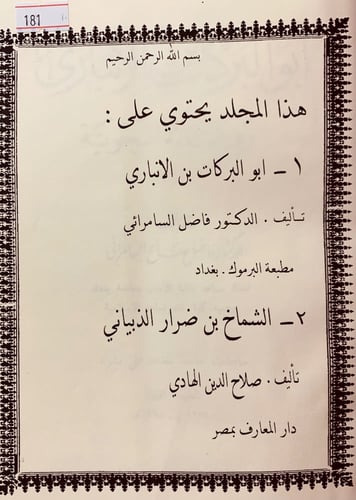 181
بسم الله الرحمن الرحيم
هذا المجلد يحتوي على :
١ ـ ابو البركات بن الانباري
تأليف . الدكتور فاضل السامرائي
مطبعة اليرموك . بغداد
٢ ـ الشماخ بن ضرار الذبياني
تأليف . صلاح الدين الهادي
دار المعارف بمصر